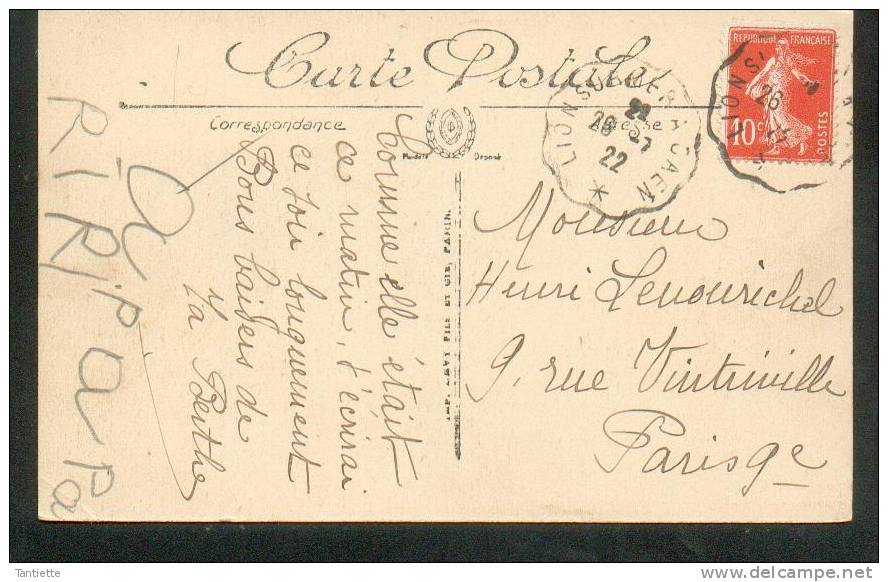 Carte Postale
Correspondance
Adresse
Modèle Déposé
Comme elle était
ce matin, t'écrirai
ce soir longuement
Bons baisers de
Ta Berthe
RIRI
a PaPa
IMP. LÉVY FILS ET CIE, PARIS.
LION SUR MER A CAEN
22
26 -7
22
REPUBLIQUE FRANÇAISE
10 c
POSTES
LION S
26
Monsieur
Henri
9, rue Vintimille
Paris 9e
Tantiette
©delcampe.net